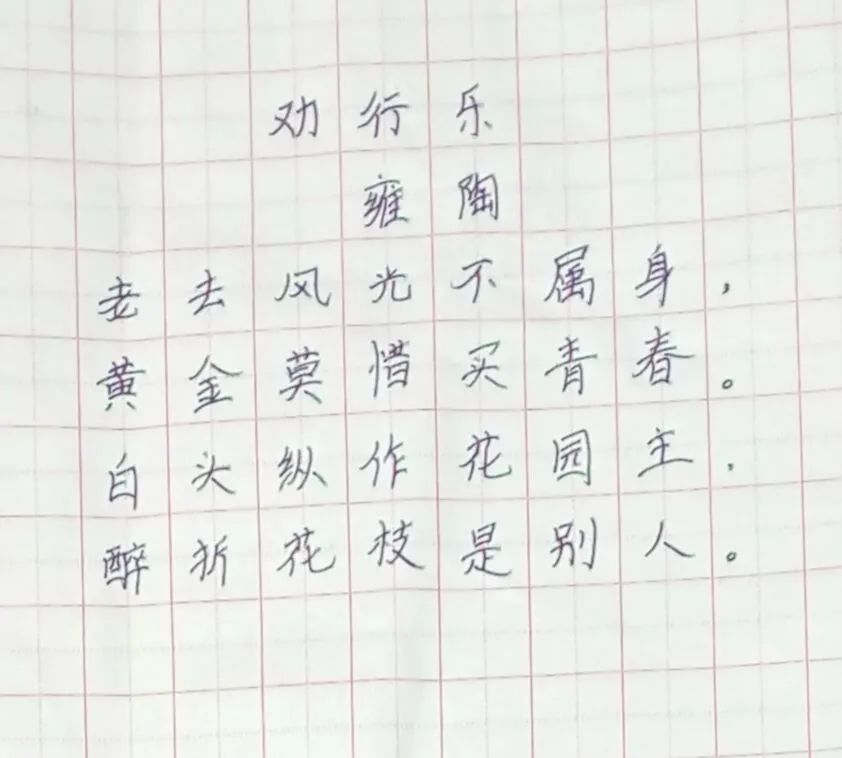 劝行乐
雍陶
老去风光不属身，
黄金莫惜买青春。
白头纵作花园主，
醉折花枝是别人。